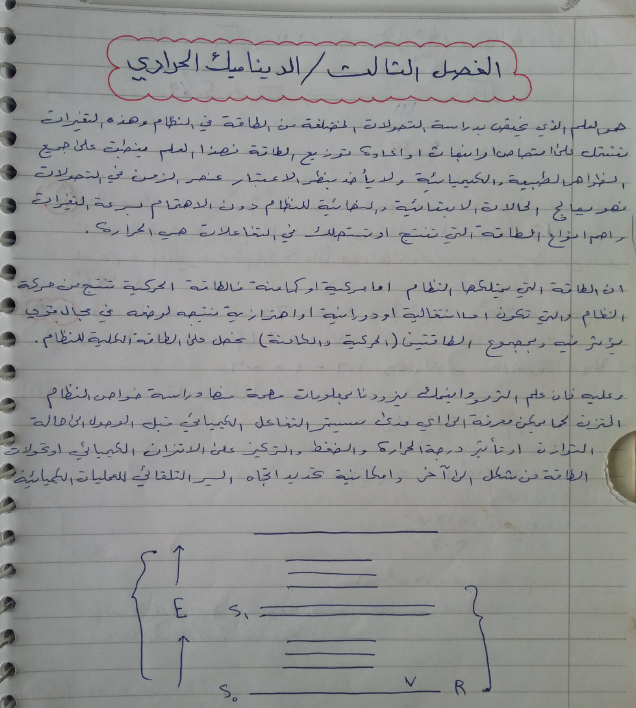 الفصل الثالث / الديناميك الحراري
هو العلم الذي يختص بدراسة التحولات المختلفة من الطاقة في النظام وهذه التغيرات
تشتمل على امتصاص او انبعاث او اعادة توزيع الطاقة فهذا العلم ينطبق على جميع
الظواهر الطبيعية والكيميائية ولا يأخذ بنظر الاعتبار عنصر الزمن في التحولات
فهو يعالج الحالات الابتدائية والنهائية للنظام دون الاهتمام بسرعة التغيرات
واهم انواع الطاقة التي تنتج او تستهلك في التفاعلات هي الحرارة .
ان الطاقة التي يمتلكها النظام اما حركية او كامنة فالطاقة الحركية تنتج من حركة
النظام والتي تكون اما انتقالية او دورانية او اهتزازية نتيجه لوضعه في مجال قوي
يؤثر فيه وبمجموع الطاقتين (الحركية والكامنة) نحصل على الطاقة الكلية للنظام .
وعليه فان علم الثرموداينمك يزودنا بمعلومات مهمة منها دراسة خواص النظام
المتزن كما يمكن معرفة الى اي مدى سيسير التفاعل الكيميائي قبل الوصول الى حالة
التوازن او تأثير درجة الحرارة والضغط والتركيز على الاتزان الكيميائي او تحولات
الطاقة من شكل الى آخر وامكانية تحديد اتجاه السير التلقائي للعمليات الكيميائية
E
S₁
S₀ V R